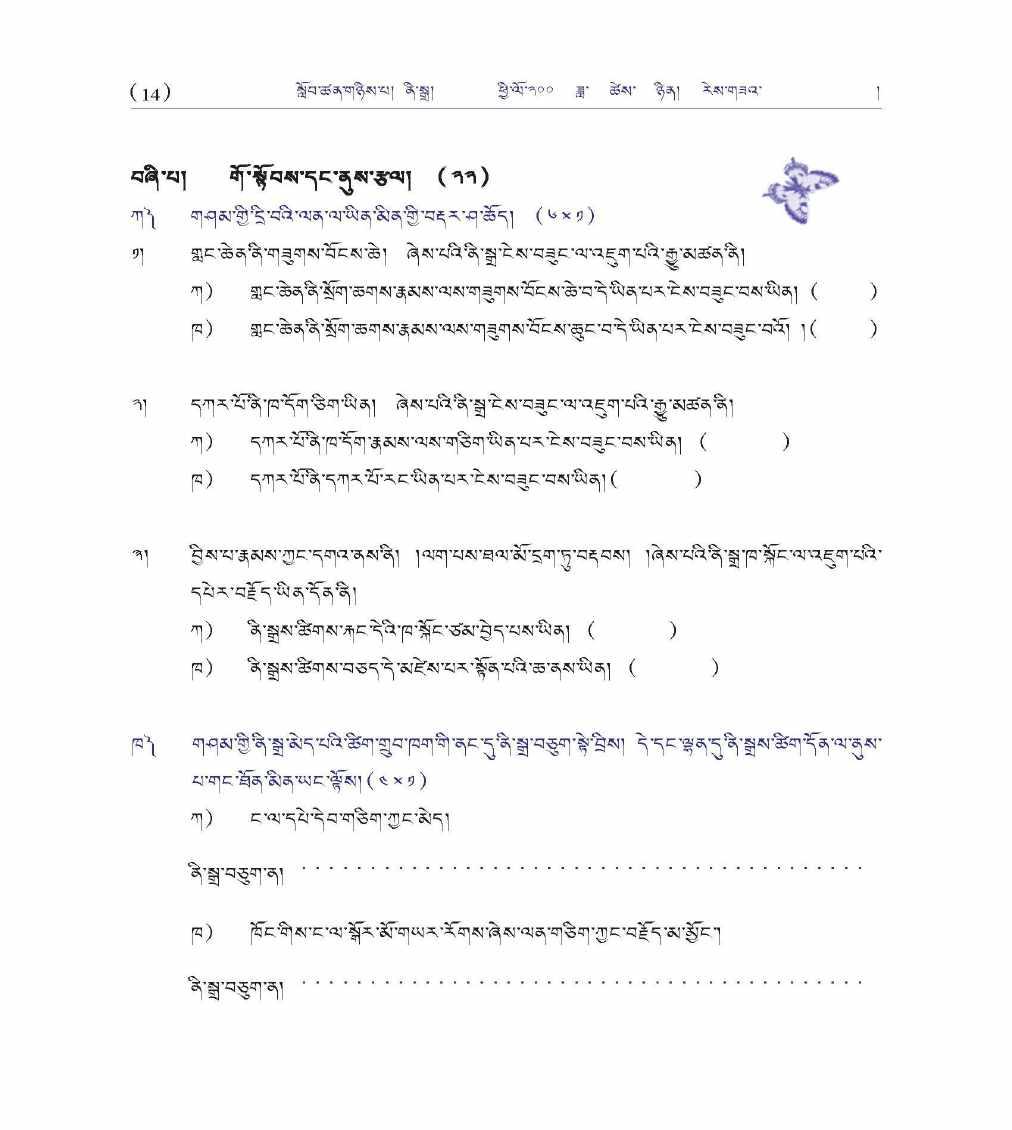 (14) སློབ་ཚན་གཉིས་པ། ནི་སྒྲ། ཕྱི་ལོ་༢༠༠ ཟླ་ ཚེས་ ཉིན། རེས་གཟའ་ །
བཞི་པ། གོ་སྟོབས་དང་ནུས་རྩལ། (༢༢)
ཀ༽ གཤམ་གྱི་དྲི་བའི་ལན་ལ་ཡིན་མིན་གྱི་བརྡར་ཤ་ཆོད། (༦×༡)
༡། གླང་ཆེན་ནི་གཟུགས་བོངས་ཆེ། ཞེས་པའི་ནི་སྒྲ་ངེས་བཟུང་ལ་འཇུག་པའི་རྒྱུ་མཚན་ནི།
ཀ) གླང་ཆེན་ནི་སྲོག་ཆགས་རྣམས་ལས་གཟུགས་བོངས་ཆེ་བ་དེ་ཡིན་པར་ངེས་བཟུང་བས་ཡིན། ( )
ཁ) གླང་ཆེན་ནི་སྲོག་ཆགས་རྣམས་ལས་གཟུགས་བོངས་ཆུང་བ་དེ་ཡིན་པར་ངེས་བཟུང་བའོ། །( )
༢། དཀར་པོ་ནི་ཁ་དོག་ཅིག་ཡིན། ཞེས་པའི་ནི་སྒྲ་ངེས་བཟུང་ལ་འཇུག་པའི་རྒྱུ་མཚན་ནི།
ཀ) དཀར་པོ་ནི་ཁ་དོག་རྣམས་ལས་གཅིག་ཡིན་པར་ངེས་བཟུང་བས་ཡིན། ( )
ཁ) དཀར་པོ་ནི་དཀར་པོ་རང་ཡིན་པར་ངེས་བཟུང་བས་ཡིན།( )
༣། བྱིས་པ་རྣམས་ཀྱང་དགའ་ནས་ནི། །ལག་པས་ཐལ་མོ་དྲག་ཏུ་བརྡབས། །ཞེས་པའི་ནི་སྒྲ་ཁ་སྐོང་ལ་འཇུག་པའི་
དཔེར་བརྗོད་ཡིན་དོན་ནི།
ཀ) ནི་སྒྲས་ཚིགས་རྐང་དེའི་ཁ་སྐོང་ཙམ་བྱེད་པས་ཡིན། ( )
ཁ) ནི་སྒྲས་ཚིགས་བཅད་དེ་མཛེས་པར་སྟོན་པའི་ཆ་ནས་ཡིན། ( )
ཁ༽ གཤམ་གྱི་ནི་སྒྲ་མེད་པའི་ཚིག་གྲུབ་ཁག་གི་ནང་དུ་ནི་སྒྲ་བཅུག་སྟེ་བྲིས། དེ་དང་ལྷན་དུ་ནི་སྒྲས་ཚིག་དོན་ལ་ནུས་
པ་གང་ཐོན་མིན་ཡང་ལྟོས།(༤×༡)
ཀ) ང་ལ་དཔེ་དེབ་གཅིག་ཀྱང་མེད།
ནི་སྒྲ་བཅུག་ན། ........................................
ཁ) ཁོང་གིས་ང་ལ་སྒོར་མོ་གཡར་རོགས་ཞེས་ལན་གཅིག་ཀྱང་བརྗོད་མ་མྱོང་།
ནི་སྒྲ་བཅུག་ན། ........................................